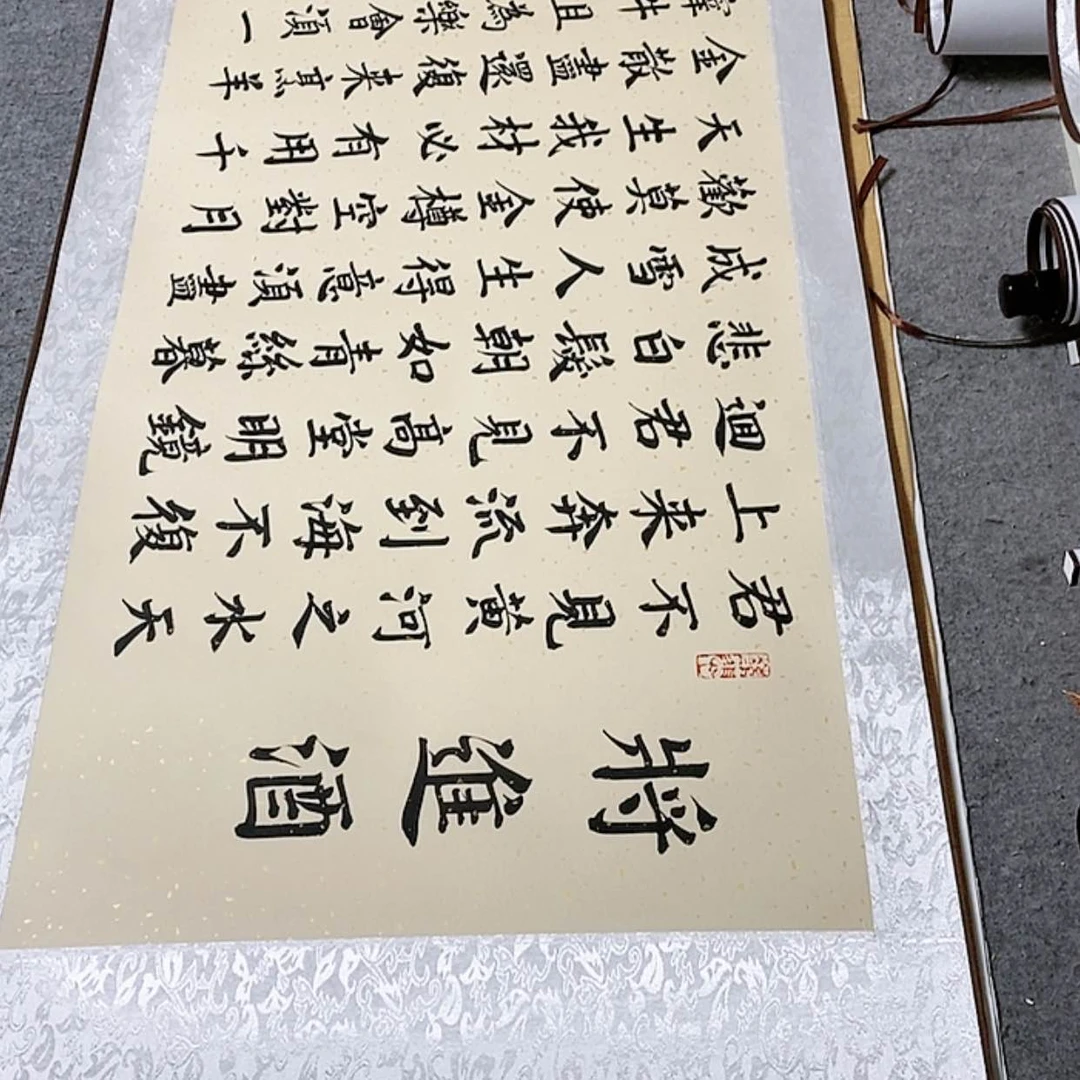 將進酒
君不見黄河之水天
上来奔流到海不復
迴君不見高堂明鏡
悲白髮朝如青絲暮
成雪人生得意須盡
歡莫使金樽空對月
天生我材必有用千
金散盡還復来烹羊
宰牛且為樂會須一